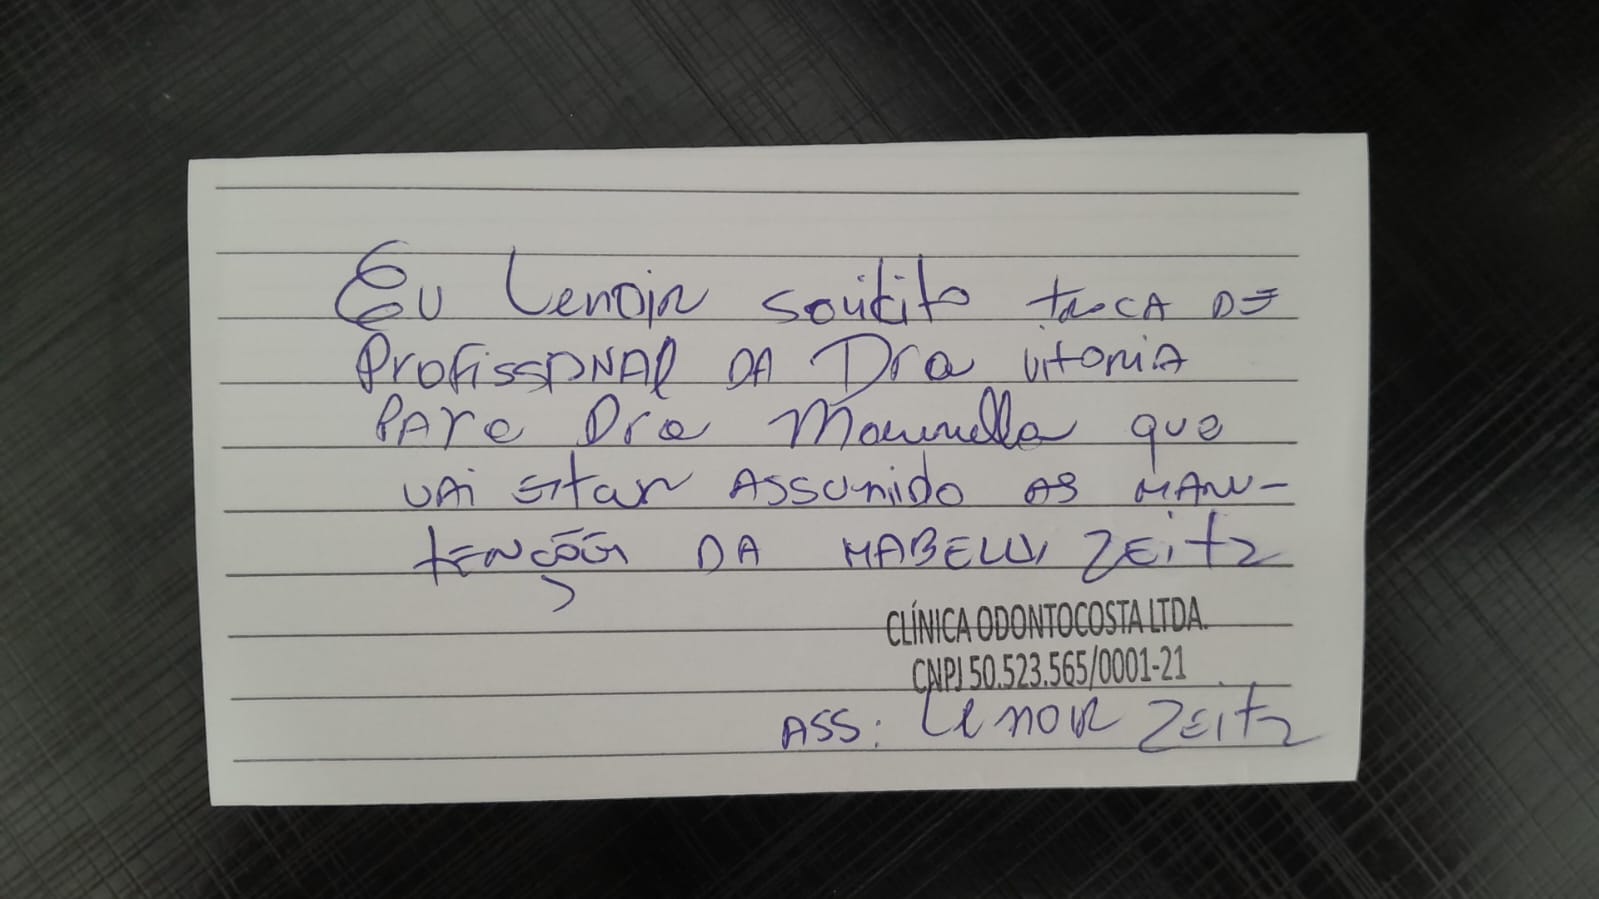 Eu Lenoir solicito troca de
Profissional da Dra Vitoria
Para Dra que
vai estar assumido as manu-
tenções da Mabelly Zeitz
CLÍNICA ODONTOCOSTA LTDA.
CNPJ 50.523.565/0001-21
ASS: Lenoir Zeitz